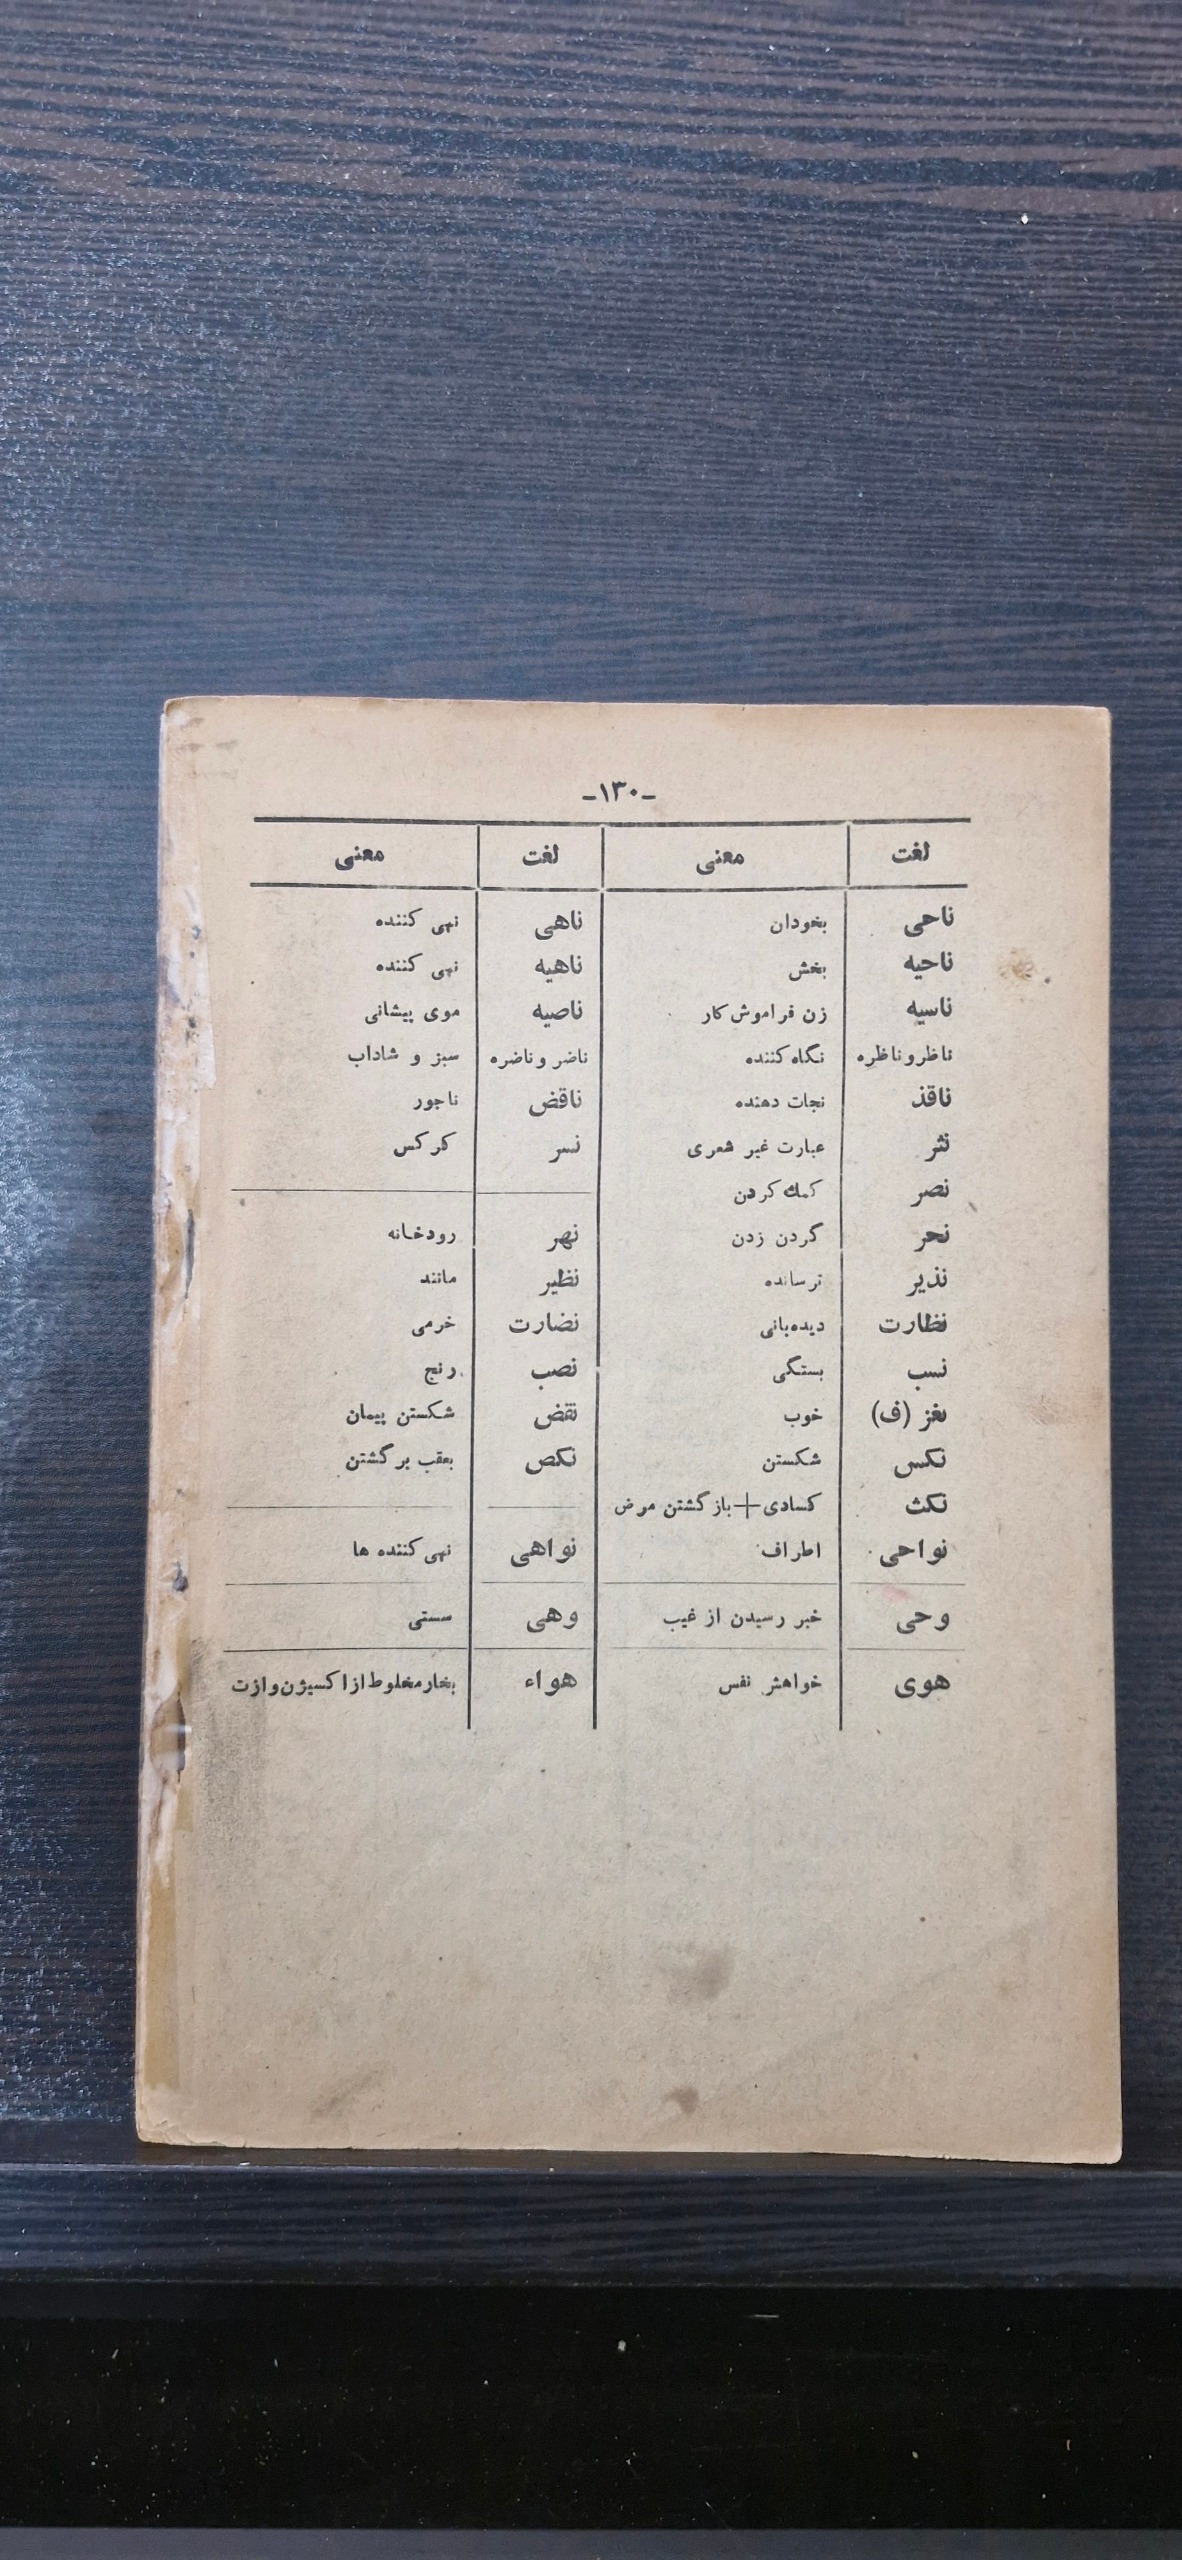 -۱۳۰-
لغت معنی لغت معنی
ناحی بخودان ناهی نهی کننده
ناحیه بخش ناهیه نهی کننده
ناسیه زن فراموش‌کار ناصیه موی پیشانی
ناظر و ناظره نگاه کننده ناضر و ناضره سبز و شاداب
ناقذ نجات دهنده ناقض ناجور
نثر عبارت غیر شعری نسر کرکس
نصر کمك کردن
نحر گردن زدن نهر رودخانه
نذیر ترسانده نظیر مانند
نظارت دیده‌بانی نضارت خرمی
نسب بستگی نصب رنج
نغز (ف) خوب نقض شکستن پیمان
نکس شکستن نکص بعقب برگشتن
نکث کسادی + بازگشتن مرض
نواحی اطراف نواهی نهی کننده ها
وحی خبر رسیدن از غیب وهی سستی
هوی خواهش نفس هواء بخار مخلوط از اکسیژن و ازت